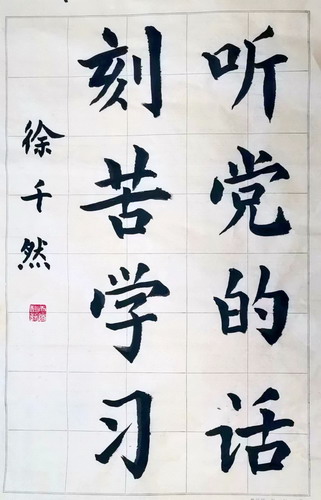 听党的话
刻苦学习
徐千然